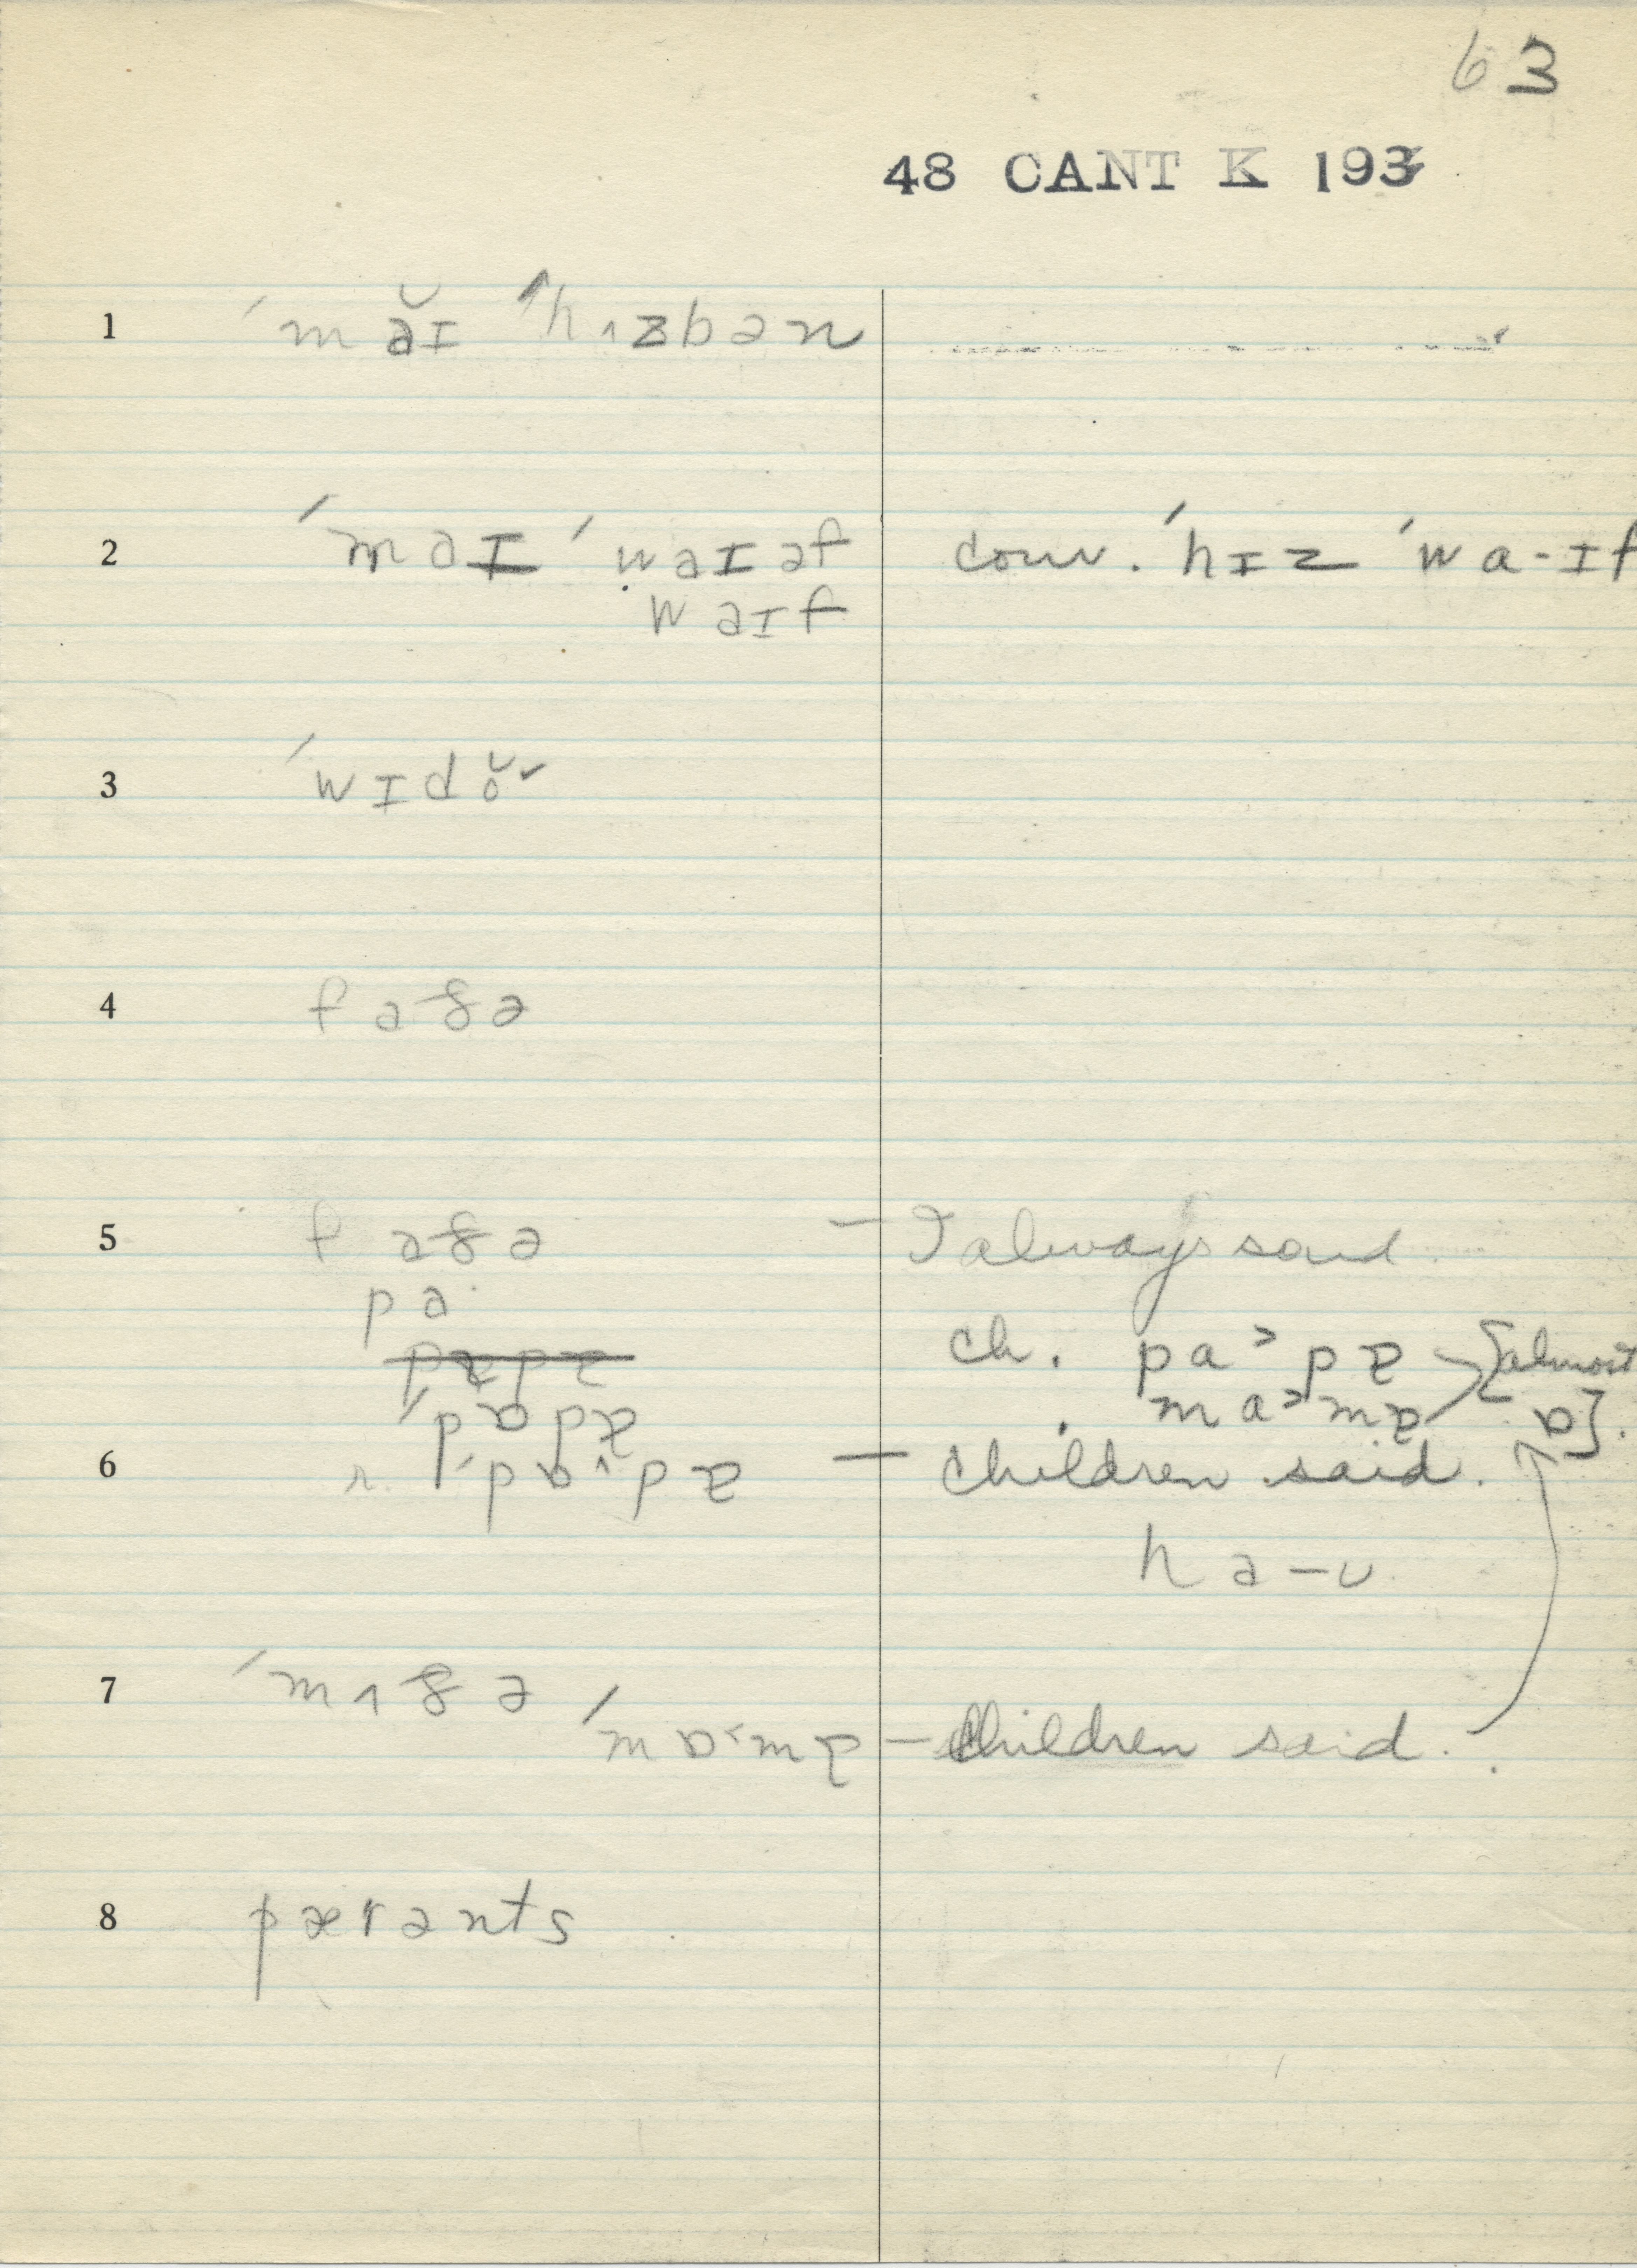 63
48 CANT K 193
1 ˈmăɪ ˈhʌzbən
2 ˈmaɪ ˈwaɪəf conv. ˈhɪz ˈwa-ɪf
waɪf
3 ˈwɪdŏ˅
4 faðə
5 faðə — I always said
pa
ch. pa˃pɐ [almost
ˈpɒpɐ . ma˃mɐ ɒ].
6 r. ˈpɒ˄pɐ — children said.
ha-ʊ
7 ˈmʌðə
ˈmɒ˂mɐ — Children said.
8 pærənts